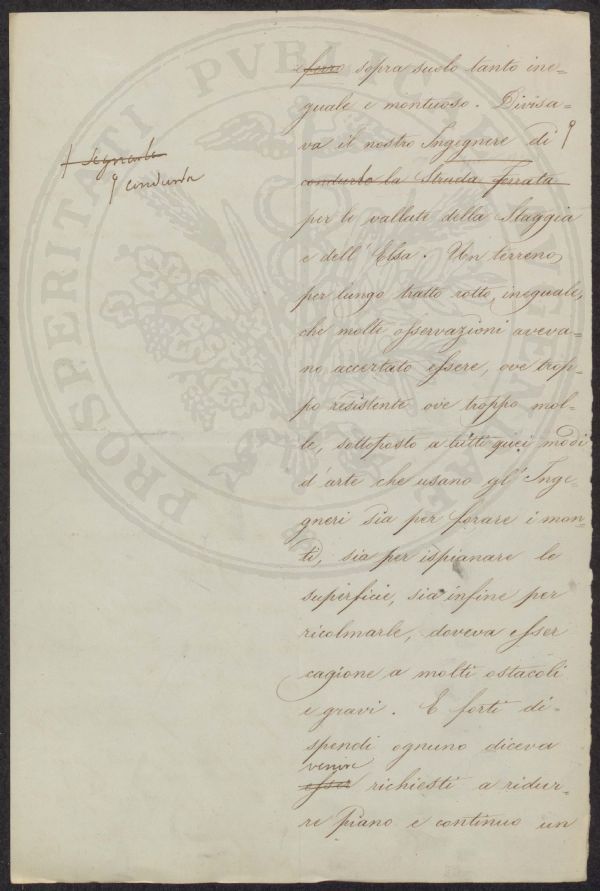 ferro sopra suolo tanto ine=
guale e montuoso. Divisa=
va il nostro Ingegnere di
+ segnarla
condurla
condurlo la Strada Ferrata
per le vallate della Staggia
e dell'Elsa. Un terreno,
per lungo tratto rotto, ineguale,
che molte osservazioni aveva=
no accertato essere, ove trop=
po resistente ove troppo mol=
le, sottoposto a tutti quei modi
d'arte che usano gl'Inge=
gneri sia per forare i mon=
ti, sia per ispianare le
superficie, sia infine per
ricolmarle, doveva esser
cagione a molti ostacoli
e gravi. E forti di=
spendi ognuno diceva
venire
esser richiesti a ridur=
re piano e continuo un
PROSPERITATI PVBLICAE AVGENDAE